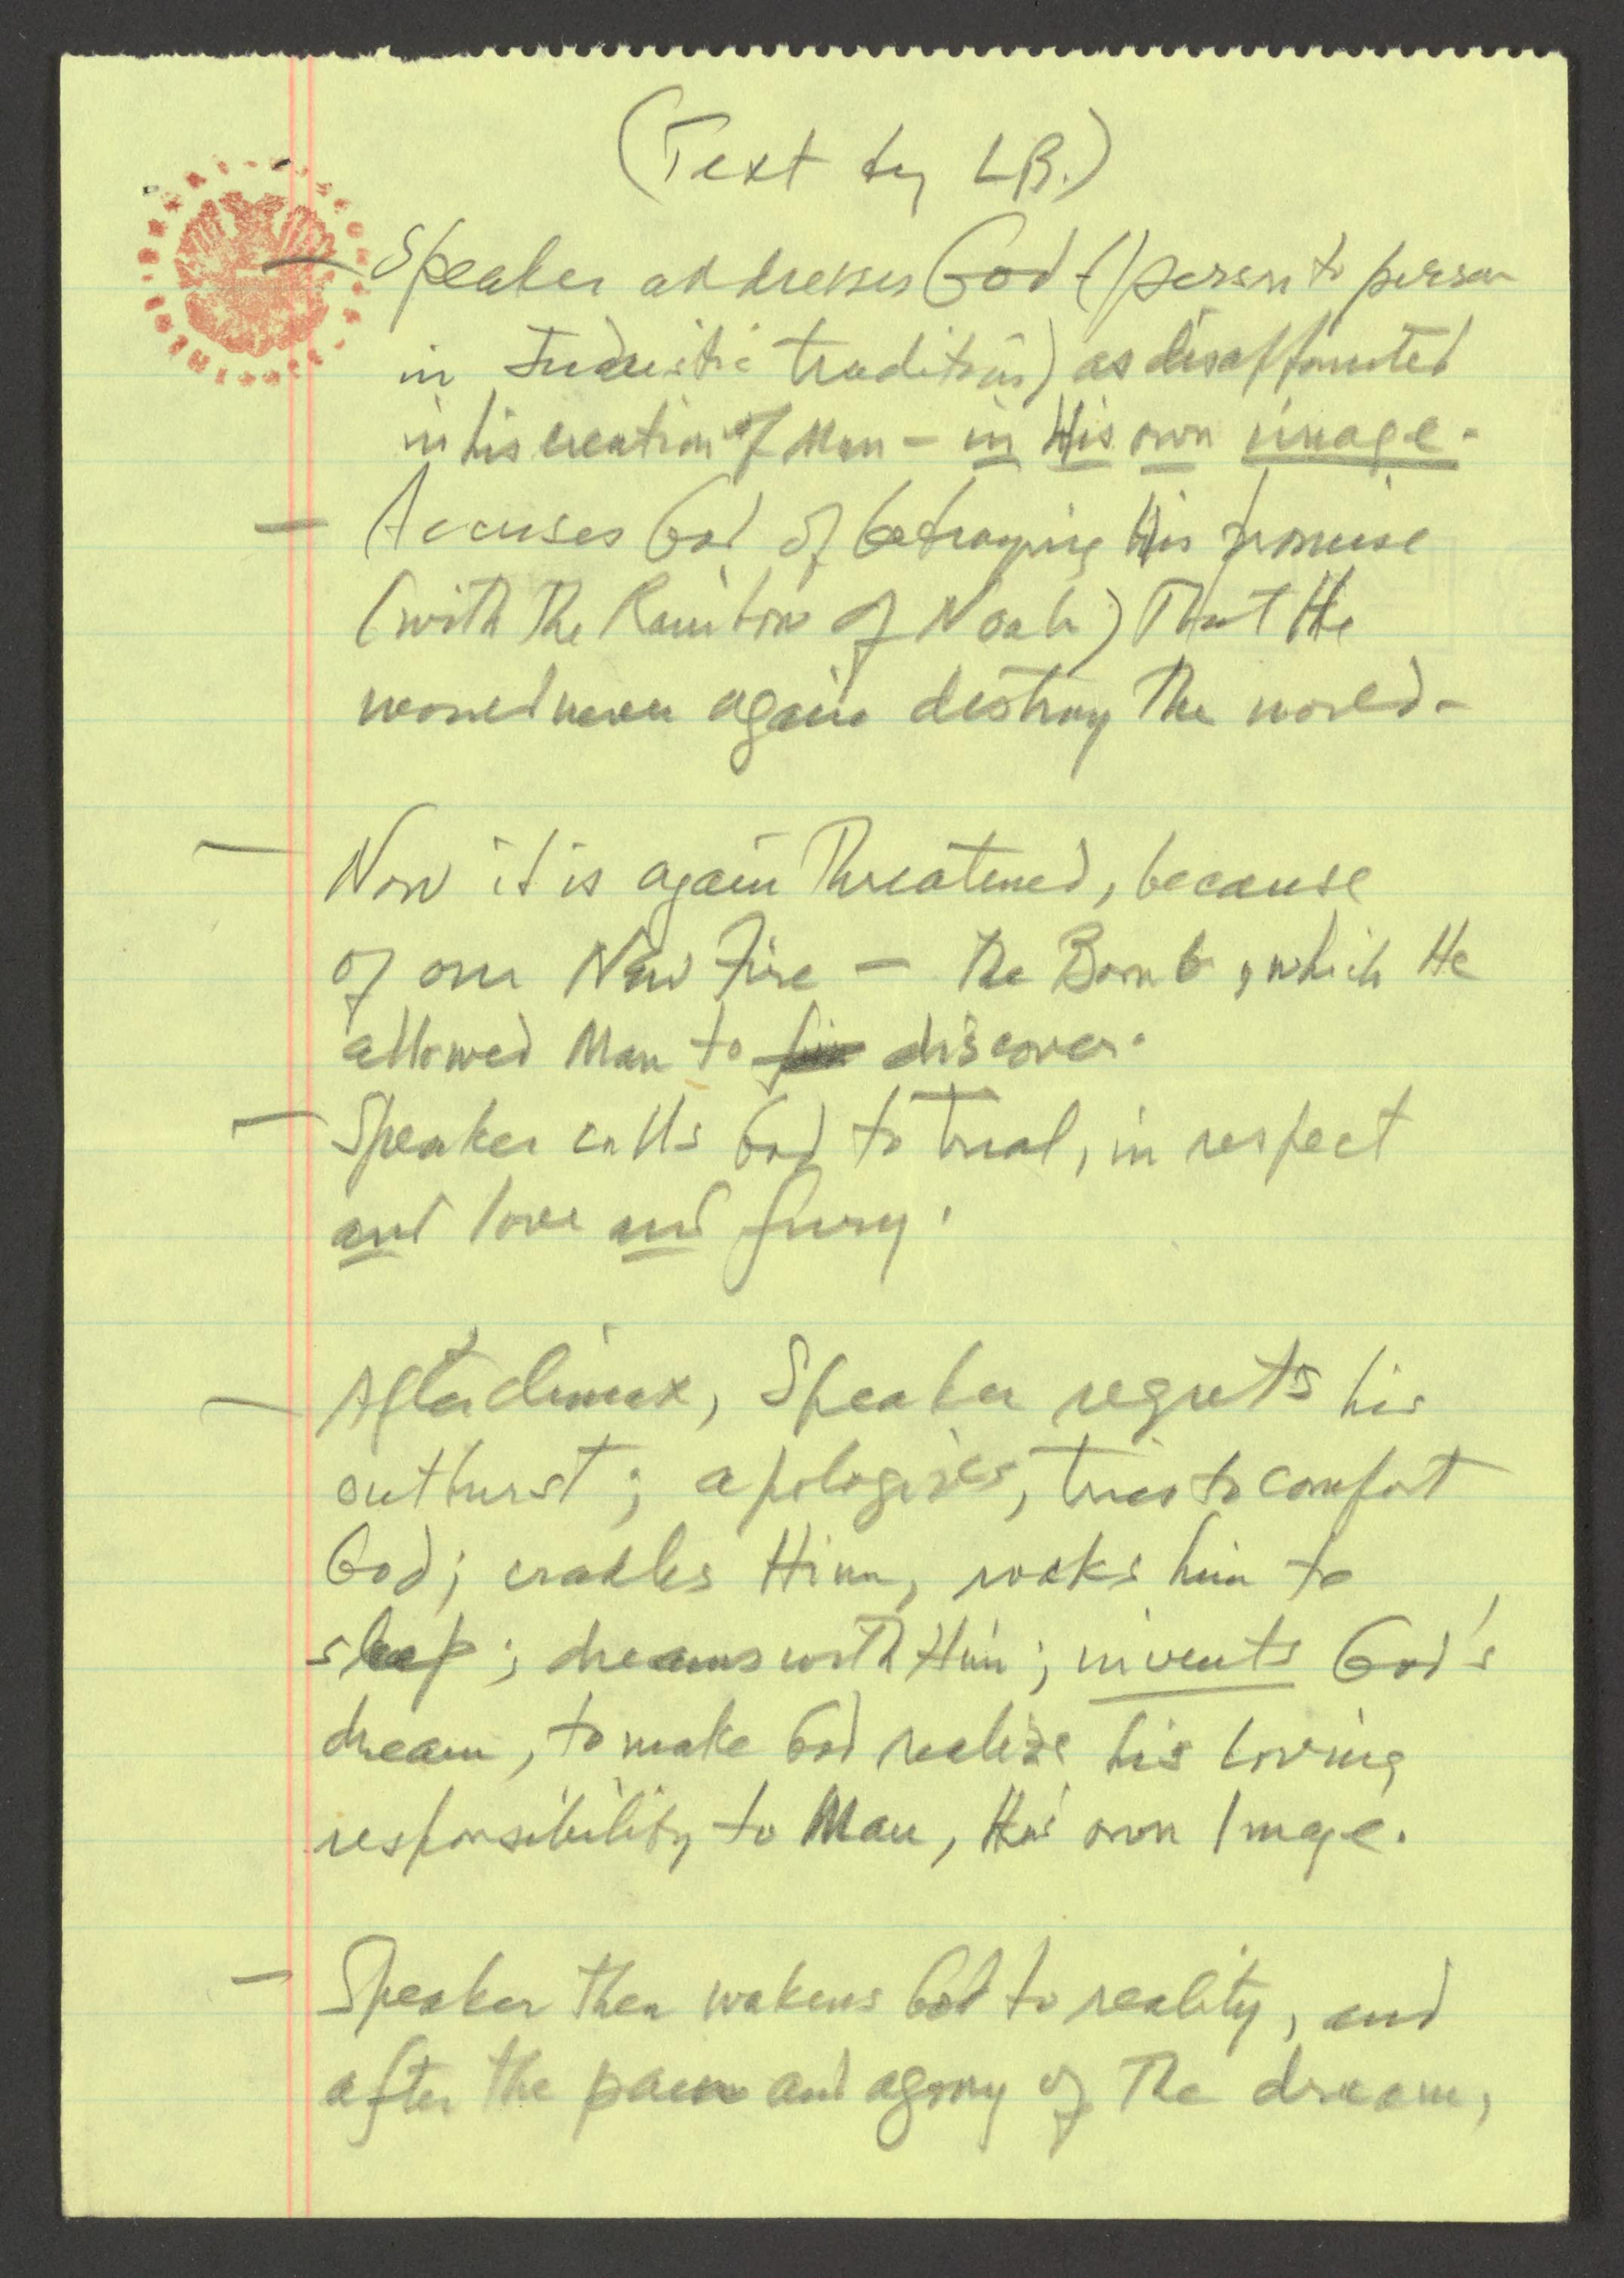 (Text by LB.)
— Speaker addresses God (person to person
in Judaistic tradition) as disappointed
in his creation of Man – in His own image.
— Accuses God of betraying His promise
(with the Rainbow of Noah) That He
would never again destroy the world.
— Now it is again Threatened, because
of our New Fire — the Bomb, which He
allowed Man to discover.
— Speaker calls God to trial, in respect
and love and fury.
— After climax, Speaker regrets his
outburst; apologizes, tries to comfort
God; cradles Him, rocks him to
sleep; dreams with Him; invents God's
dream, to make God realize his loving
responsibility to Man, His own Image.
— Speaker then wakens God to reality, and
after the pain and agony of the dream,